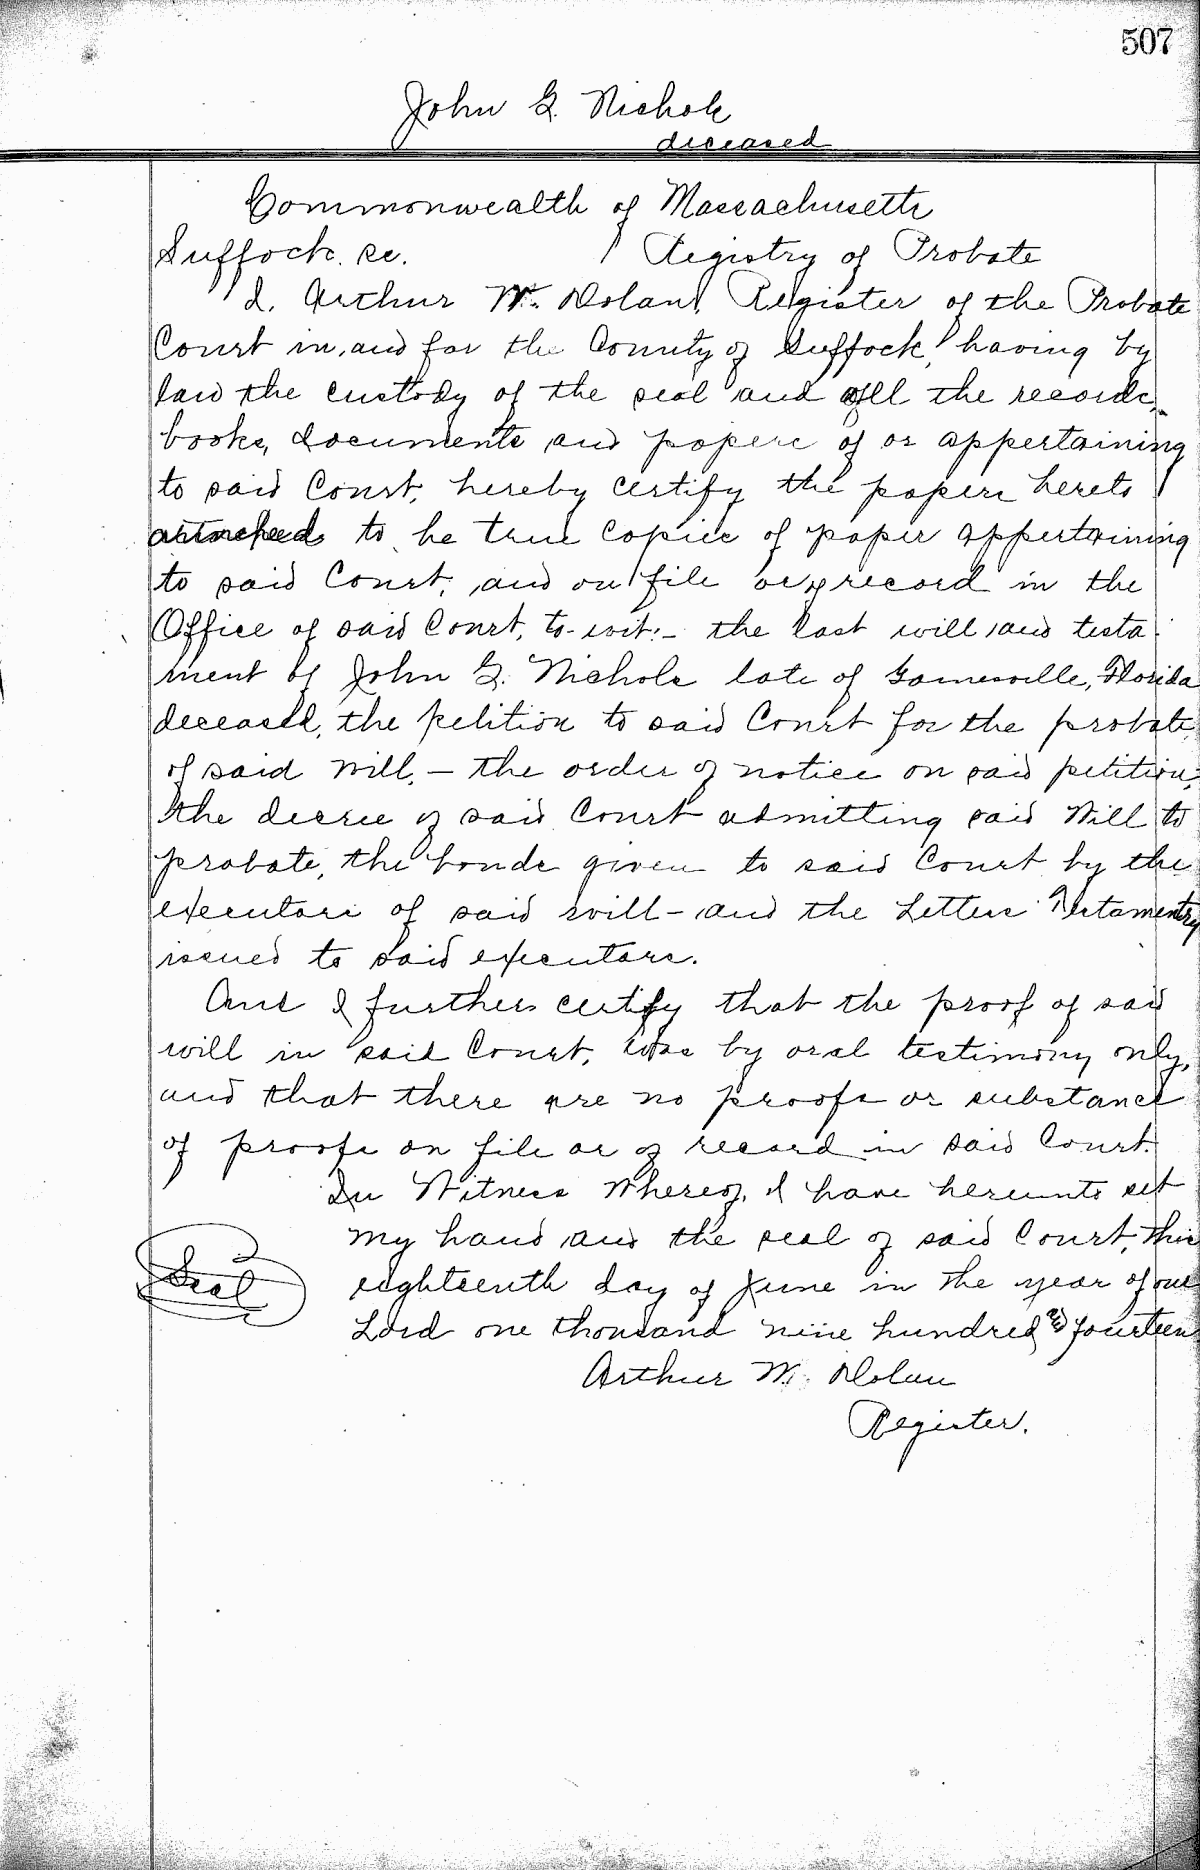 507
John G. Nichols
deceased
Commonwealth of Massachusetts
Suffock. ss. Registry of Probate
I, Arthur W. Dolan, Register of the Probate
Court in, and for the County of Suffock, having by
law the custody of the seal and all the records,
books, documents and papers of or appertaining
to said Court, hereby certify the papers hereto
attached to be true copies of paper appertaining
to said Court, and on file or of record in the
Office of said Court, to-wit:- the last will and testa
ment of John G. Nichols late of Gainesville, Florida
deceased, the petition to said Court for the probate
of said will, - the order of notice on said petition,
the decree of said Court admitting said Will to
probate, the bonds given to said Court by the
executors of said will - and the Letters Testamentry
issued to said executors.
And I further certify that the proof of said
will in said Court, was by oral testimony only,
and that there are no proofs or substance
of proofs on file or of record in said Court.
In Witness Whereof, I have hereunto set
my hand and the seal of said Court, this
Seal
eighteenth day of June in the year of our
Lord one thousand nine hundred & fourteen
Arthur W. Dolan
Register.